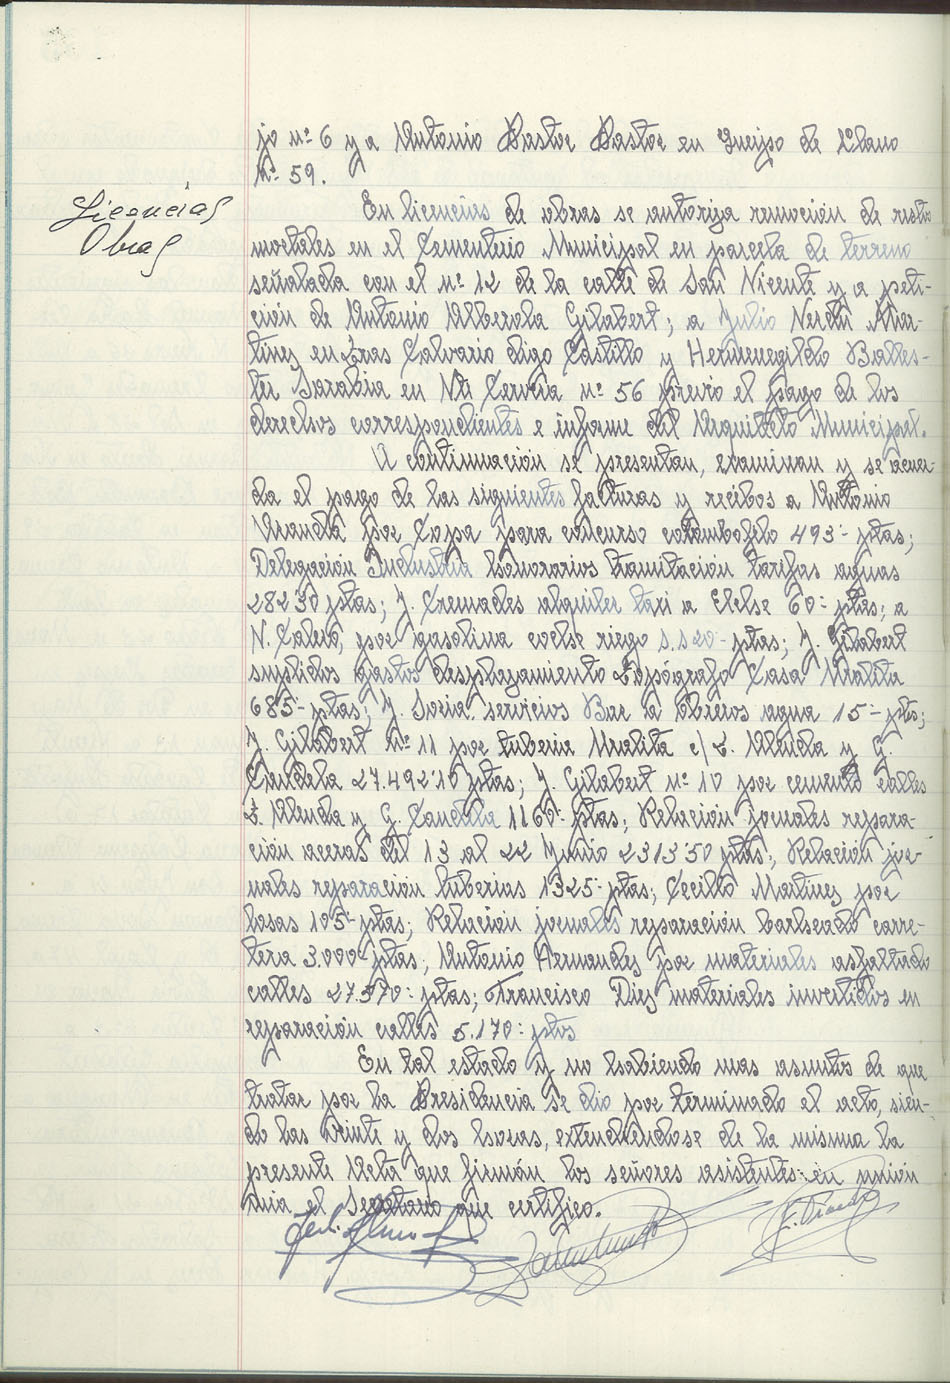 jo nº 6 y a Antonio Pastor Pastor en Queipo de Llano
Nº 59.
Licencias
Obras
En licencias de obras se autoriza remoción de resto
mortales en el Cementerio Municipal en parcela de terreno
señalada con el nº 12 de la calle de San Vicente y a peti-
ción de Antonio Alberola Gilabert; a Julio Verdú Mar-
tínez en Eras Calvario digo Castillo y Hermenegildo Balles-
ter Sarabia en Nª nº 56 previo el pago de los
derechos correspondientes e informe del Arquitecto Municipal.
A continuación se presentan, examinan y se acuer-
da el pago de las siguientes facturas y recibos a Antonio
por Copa para concurso colombofilo 493- ptas;
Delegación Industria honorarios tramitación tarifas aguas
282'30 ptas; J. Cremades alquiler taxi a Elche 60- ptas; a
N. Calero, por gasolina coche riego ptas; J. Gilabert
suplidos gastos desplazamiento Casa Uralita
685- ptas; J. Soria servicios Bar a Obreros agua 15- ptas;
J. Gilabert nº 11 por tuberia Uralita c/ L. Alenda y G.
Candela 27.492'10 ptas; J. Gilabert nº 10 por cemento calles
L. Alenda y G. Candela 1160- ptas; Relación jornales repara-
ción aceras del 13 al 22 Junio 2313'50 ptas; Relación jor-
nales reparación tuberias 1325- ptas; Cecilio Martinez por
losas 105- ptas; Relación jornales reparación bacheado carre-
tera 3.000- ptas; Antonio Hernandez por materiales asfaltado
calles 27.370- ptas; Francisco Diez materiales invertidos en
reparación calles 5.170- ptas
En tal estado y no habiendo mas asuntos de que
tratar por la Presidencia se dio por terminado el acto, sien-
do las veinte y dos horas, extendiendose de la misma la
presente Acta que firman los señores asistentes en unión
mia el Secretario que certifico.